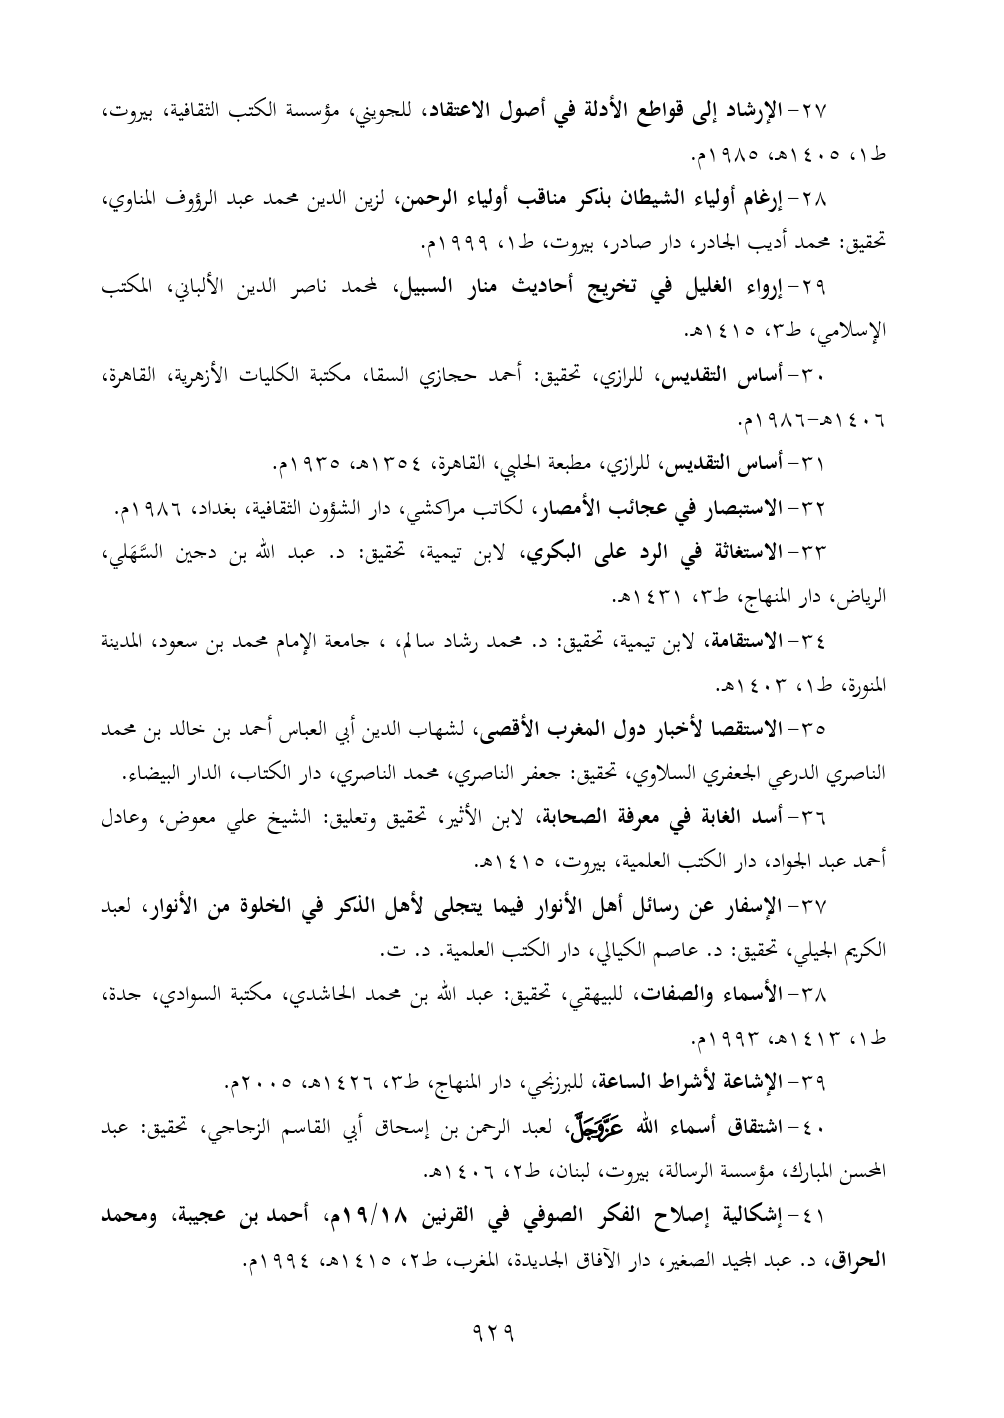 ٢٧- الإرشاد إلى قواطع الأدلة في أصول الاعتقاد، للجويني، مؤسسة الكتب الثقافية، بيروت،
ط١، ١٤٠٥هـ، ١٩٨٥م.
٢٨- إرغام أولياء الشيطان بذكر مناقب أولياء الرحمن، لزين الدين محمد عبد الرؤوف المناوي،
تحقيق: محمد أديب الجادر، دار صادر، بيروت، ط١، ١٩٩٩م.
٢٩- إرواء الغليل في تخريج أحاديث منار السبيل، لمحمد ناصر الدين الألباني، المكتب
الإسلامي، ط٣، ١٤١٥هـ.
٣٠- أساس التقديس، للرازي، تحقيق: أحمد حجازي السقا، مكتبة الكليات الأزهرية، القاهرة،
١٤٠٦هـ-١٩٨٦م.
٣١- أساس التقديس، للرازي، مطبعة الحلبي، القاهرة، ١٣٥٤هـ، ١٩٣٥م.
٣٢- الاستبصار في عجائب الأمصار، لكاتب مراكشي، دار الشؤون الثقافية، بغداد، ١٩٨٦م.
٣٣- الاستغاثة في الرد على البكري، لابن تيمية، تحقيق: د. عبد الله بن دجين السَّهَلي،
الرياض، دار المنهاج، ط٣، ١٤٣١هـ.
٣٤- الاستقامة، لابن تيمية، تحقيق: د. محمد رشاد سالم، ، جامعة الإمام محمد بن سعود، المدينة
المنورة، ط١، ١٤٠٣هـ.
٣٥- الاستقصا لأخبار دول المغرب الأقصى، لشهاب الدين أبي العباس أحمد بن خالد بن محمد
الناصري الدرعي الجعفري السلاوي، تحقيق: جعفر الناصري، محمد الناصري، دار الكتاب، الدار البيضاء.
٣٦- أسد الغابة في معرفة الصحابة، لابن الأثير، تحقيق وتعليق: الشيخ علي معوض، وعادل
أحمد عبد الجواد، دار الكتب العلمية، بيروت، ١٤١٥هـ.
٣٧- الإسفار عن رسائل أهل الأنوار فيما يتجلى لأهل الذكر في الخلوة من الأنوار، لعبد
الكريم الجيلي، تحقيق: د. عاصم الكيالي، دار الكتب العلمية. د. ت.
٣٨- الأسماء والصفات، للبيهقي، تحقيق: عبد الله بن محمد الحاشدي، مكتبة السوادي، جدة،
ط١، ١٤١٣هـ، ١٩٩٣م.
٣٩- الإشاعة لأشراط الساعة، للبرزنجي، دار المنهاج، ط٣، ١٤٢٦هـ، ٢٠٠٥م.
٤٠- اشتقاق أسماء الله عَزَّوَجَلَّ، لعبد الرحمن بن إسحاق أبي القاسم الزجاجي، تحقيق: عبد
المحسن المبارك، مؤسسة الرسالة، بيروت، لبنان، ط٢، ١٤٠٦هـ.
٤١- إشكالية إصلاح الفكر الصوفي في القرنين ١٩/١٨م، أحمد بن عجيبة، ومحمد
الحراق، د. عبد المجيد الصغير، دار الآفاق الجديدة، المغرب، ط٢، ١٤١٥هـ، ١٩٩٤م.
٩٢٩